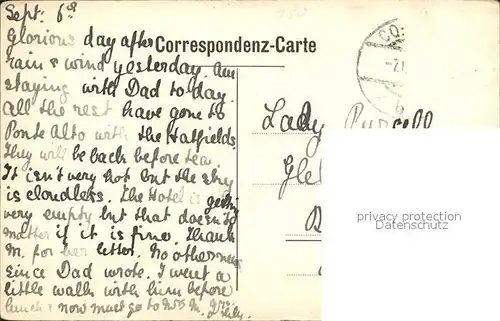 Sept: 6th
Glorious day after
rain & wind yesterday. Am
staying with Dad to day.
All the rest have gone to
Ponte Alto with the Hatfields
They will be back before tea.
It isn't very hot but the sky
is cloudless. The Hotel is getting
very empty but that doesn't
matter if it is fine. Thank
M. for her letter. No other news
since Dad wrote. I went a
little walk with him before
lunch & now must go to
Correspondenz-Carte
CO
Lady Purcell
Gle
privacy protection
Datenschutz